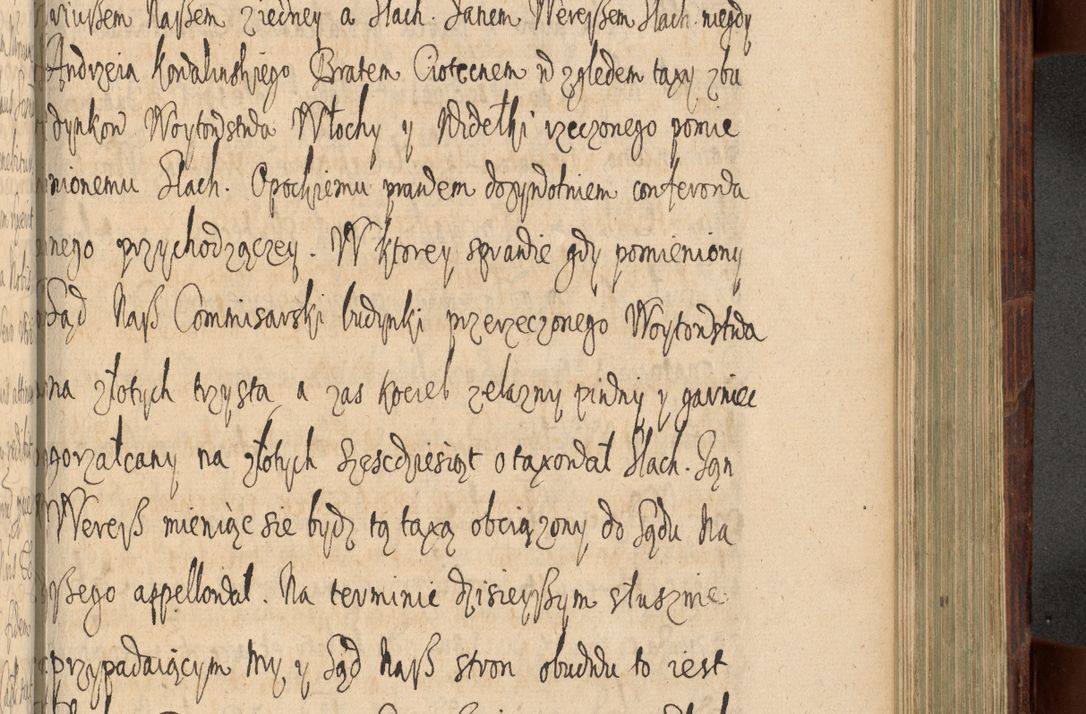 riuszem Naszem ziedney a Slach. Janem Wereszem Slach. niegdy
Andrzeia Kowalinskiego Bratem Ciotecnem w zgledem taxy zbu
dynkow Woytowstwa Włochy y Widełki rzeczonego pomie
nionemu Slach. Opockiemu prawdem dozywotniem conferowa
nego przychodzączey. W ktorey sprawie gdy pomieniony
Sąd Nasz Commisarski budynki przerzeczonego Woytowstwa
na złotych trzysta a zas kocieł zelazny piwny y garniec
gorzałcany na złotych szescdziesiąt otaxował Slach. Jan
Weresz mieniąc sie bydz tą taxą obciązony do Sądu Na
szego appellował. Na terminie dzisieyszym słusznie
przypadaiącym My y Sąd Nasz stron obudwu to iest